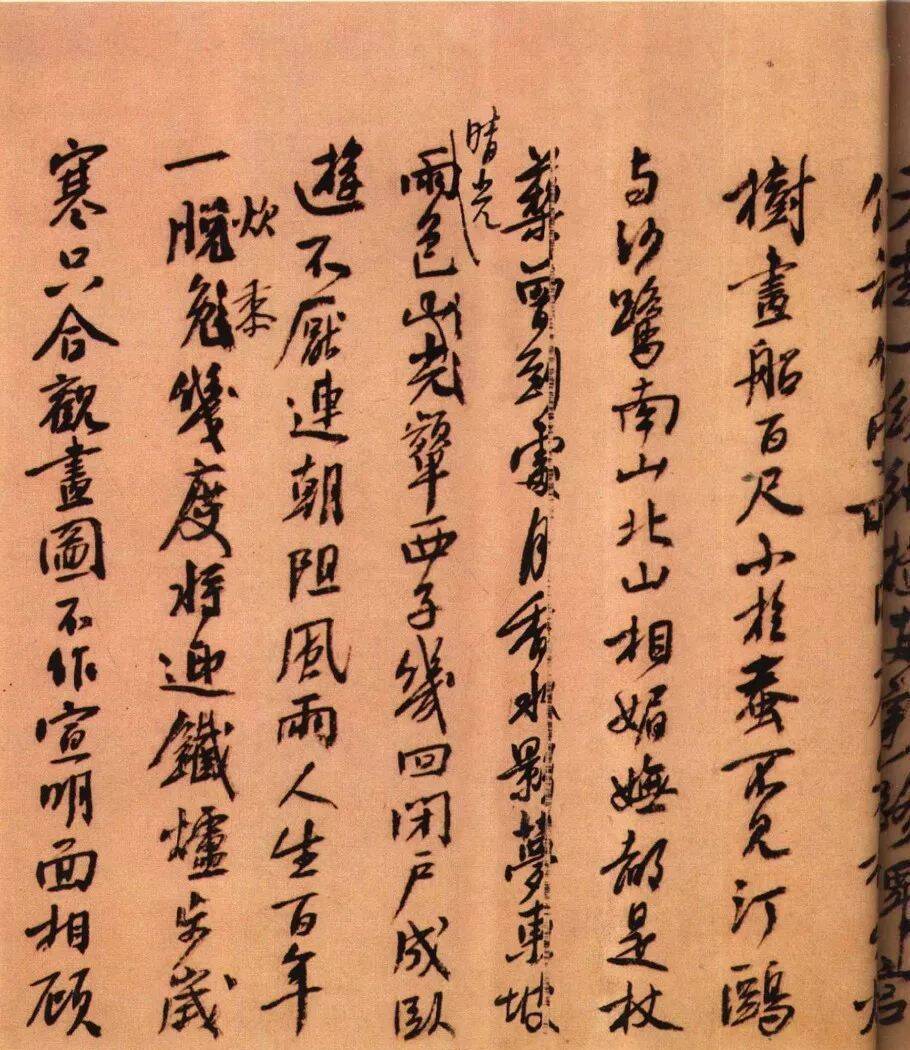 樹畫船百尺小於蚕不見汀鷗
与沙鷺南山北山相媚嫵都是杖
藜曾到處月香水影夢東坡
晴光
雨色山光顰西子幾回閉戶成臥
遊不厭連朝阻風雨人生百年
炊黍
一脫兔幾度將迎鐵爐步歲
寒只合觀畫圖不作宣明面相顧